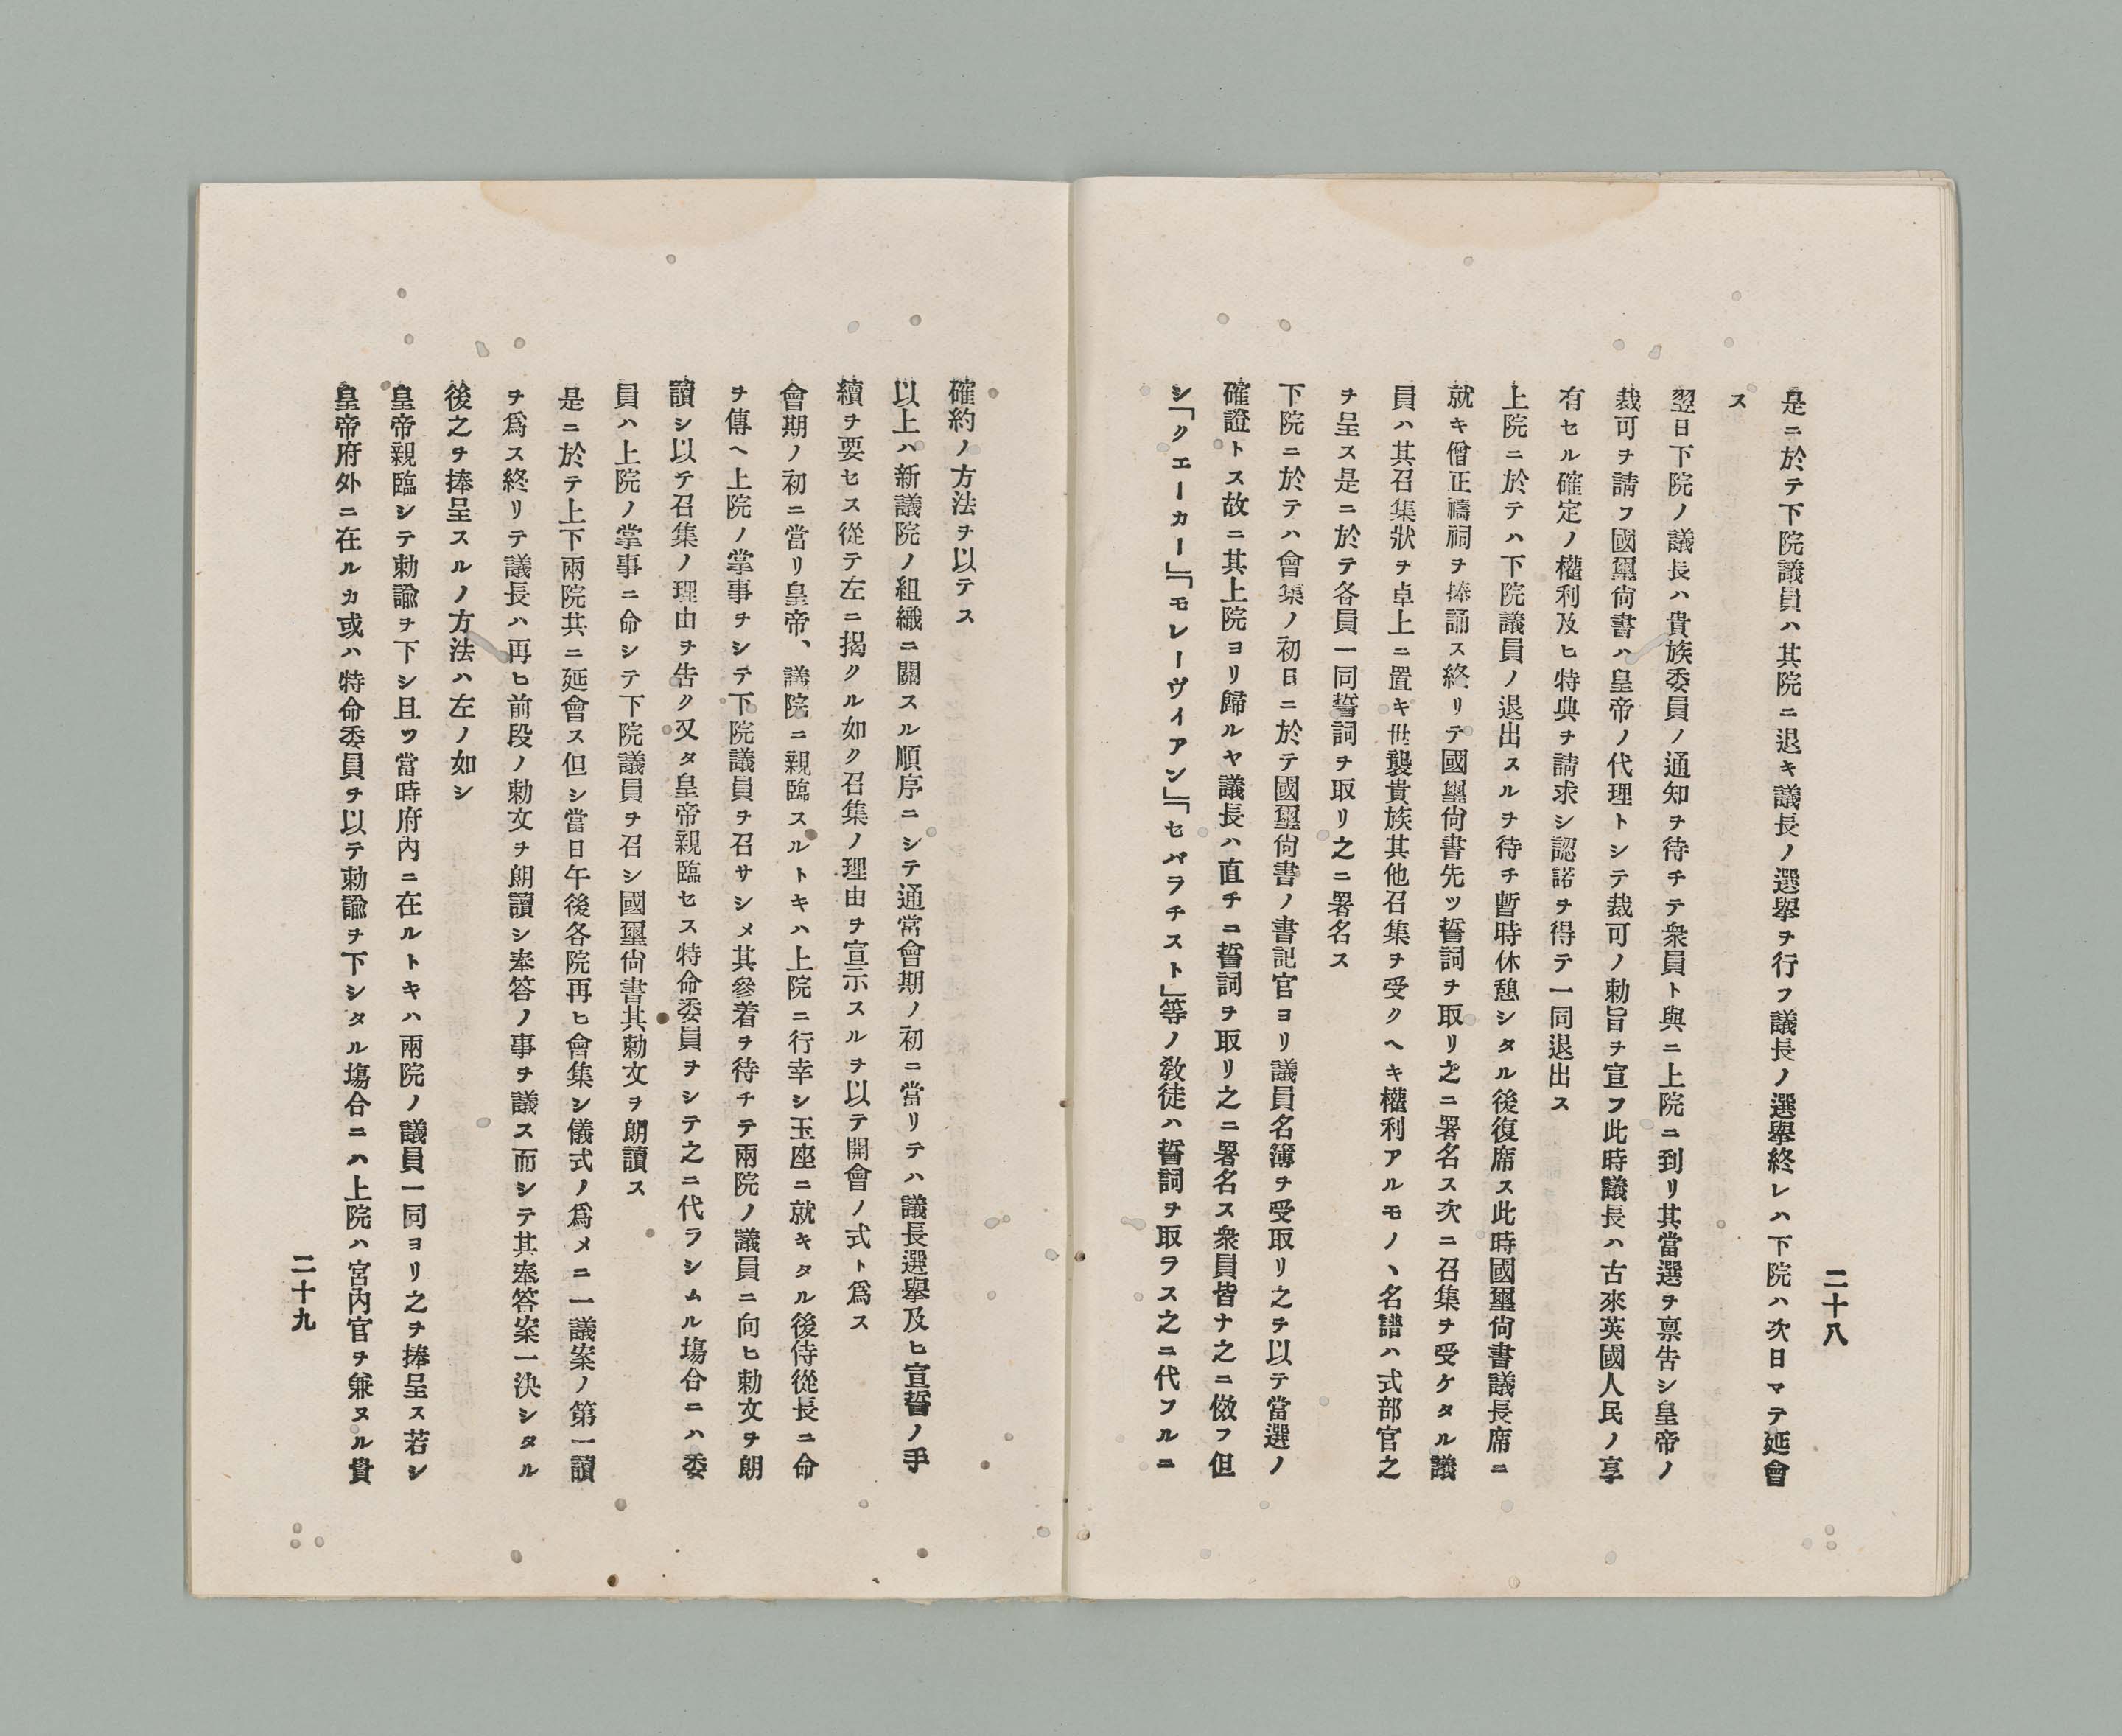 二十八
是ニ於テ下院議員ハ其院ニ退キ議長ノ選擧ヲ行フ議長ノ選擧終レハ下院ハ次日マテ延會
ス
翌日下院ノ議長ハ貴族委員ノ通知ヲ待チテ衆員ト與ニ上院ニ到リ其當選ヲ禀告シ皇帝ノ
裁可ヲ請フ國璽尙書ハ皇帝ノ代理トシテ裁可ノ勅旨ヲ宣フ此時議長ハ古來英國人民ノ享
有セル確定ノ權利及ヒ特典ヲ請求シ認諾ヲ得テ一同退出ス
上院ニ於テハ下院議員ノ退出スルヲ待チ暫時休憩シタル後復席ス此時國璽尙書議長席ニ
就キ僧正禱祠ヲ捧誦ス終リテ國璽尙書先ツ誓詞ヲ取リ之ニ署名ス次ニ召集ヲ受ケタル議
員ハ其召集狀ヲ卓上ニ置キ世襲貴族其他召集ヲ受クヘキ權利アルモノヽ名譜ハ式部官之
ヲ呈ス是ニ於テ各員一同誓詞ヲ取リ之ニ署名ス
下院ニ於テハ會集ノ初日ニ於テ國璽尙書ノ書記官ヨリ議員名簿ヲ受取リ之ヲ以テ當選ノ
確證トス故ニ其上院ヨリ歸ルヤ議長ハ直チニ誓詞ヲ取リ之ニ署名ス衆員皆ナ之ニ倣フ但
シ「クエーカー」「モレーヴィアン」「セパラチスト」等ノ敎徒ハ誓詞ヲ取ラス之ニ代フルニ
確約ノ方法ヲ以テス
以上ハ新議院ノ組織ニ關スル順序ニシテ通常會期ノ初ニ當リテハ議長選擧及ヒ宣誓ノ手
續ヲ要セス從テ左ニ揭クル如ク召集ノ理由ヲ宣示スルヲ以テ開會ノ式ト爲ス
會期ノ初ニ當リ皇帝、議院ニ親臨スルトキハ上院ニ行幸シ玉座ニ就キタル後侍從長ニ命
ヲ傳ヘ上院ノ掌事ヲシテ下院議員ヲ召サシメ其參着ヲ待チテ兩院ノ議員ニ向ヒ勅文ヲ朗
讀シ以テ召集ノ理由ヲ告ク又タ皇帝親臨セス特命委員ヲシテ之ニ代ラシムル塲合ニハ委
員ハ上院ノ掌事ニ命シテ下院議員ヲ召シ國璽尙書其勅文ヲ朗讀ス
是ニ於テ上下兩院共ニ延會ス但シ當日午後各院再ヒ會集シ儀式ノ爲メニ一議案ノ第一讀
ヲ爲ス終リテ議長ハ再ヒ前段ノ勅文ヲ朗讀シ奉答ノ事ヲ議ス而シテ其奉答案一決シタル
後之ヲ捧呈スルノ方法ハ左ノ如シ
皇帝親臨シテ勅諭ヲ下シ且ツ當時府內ニ在ルトキハ兩院ノ議員一同ヨリ之ヲ捧呈ス若シ
皇帝府外ニ在ルカ或ハ特命委員ヲ以テ勅諭ヲ下シタル塲合ニハ上院ハ宮內官ヲ兼ヌル貴
二十九